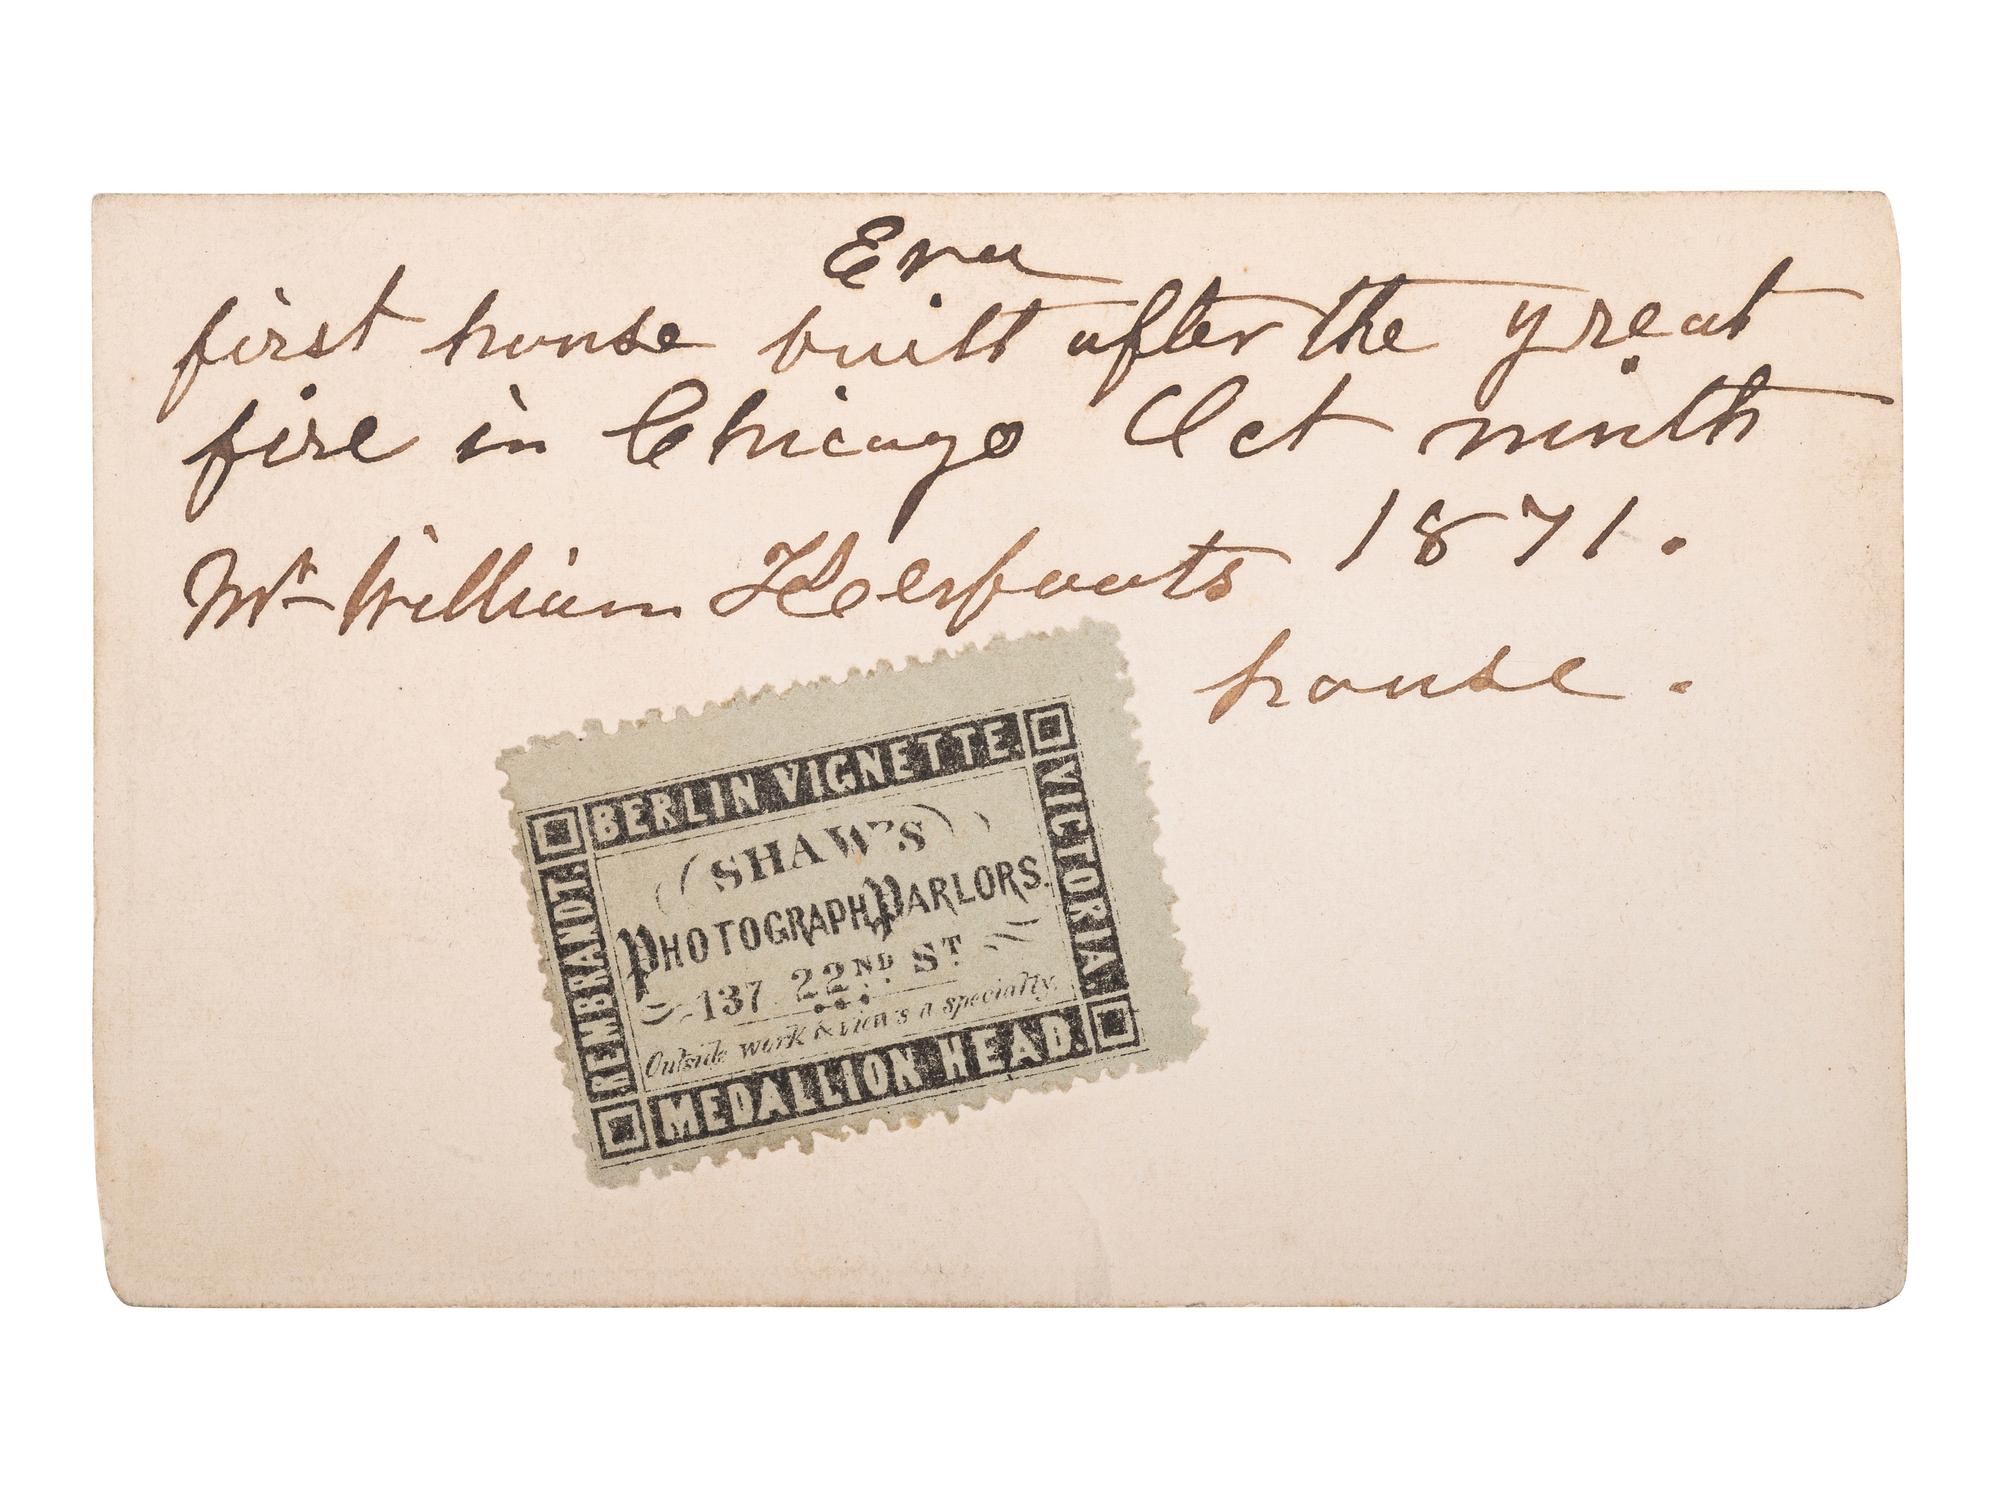 Eva
first house built after the great
fire in Chicago Oct ninth
1871.
Mr William Keerfoots
house.
BERLIN VIGNETTE
REMBRANDT.
SHAW'S
PHOTOGRAPH PARLORS.
137 22ND ST
Outside work & view's a specialty.
VICTORIA.
MEDALLION HEAD.